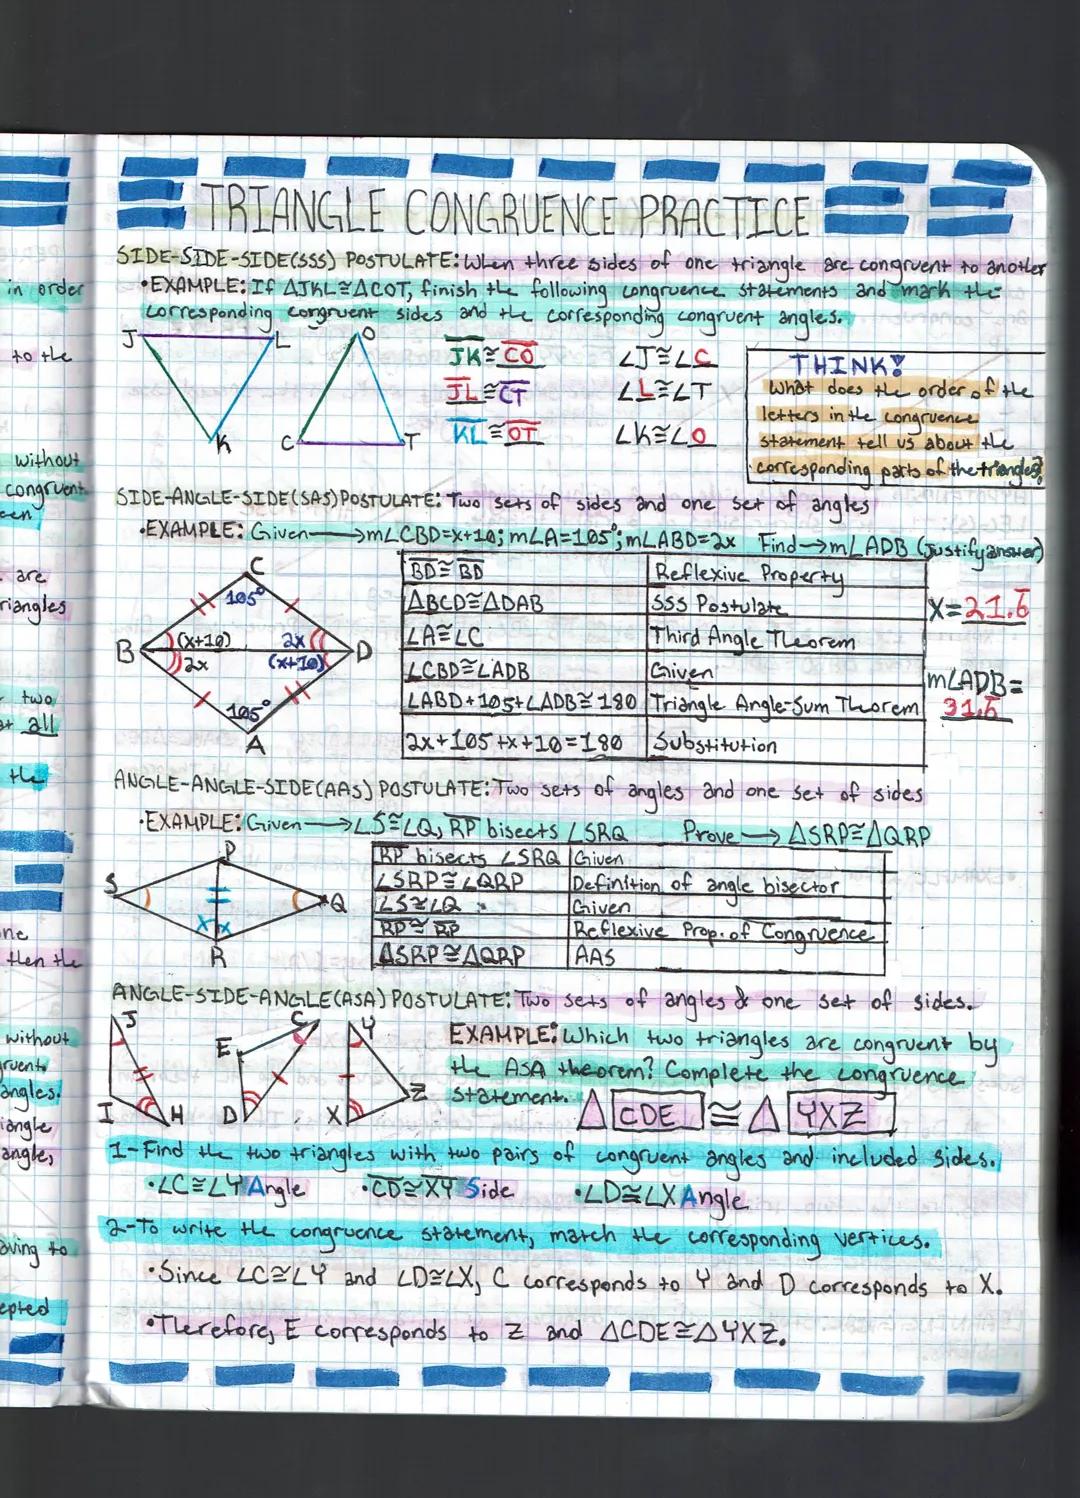 TRIANGLE CONGRUENCE PRACTICE
SIDE-SIDE-SIDE(SSS) POSTULATE: When three sides of one triangle are congruent to another
•EXAMPLE: If ΔJKL≅ΔCOT, finish the following congruence statements and mark the
corresponding congruent sides and the corresponding congruent angles.
J L O
K C T
JK≅CO ∠J≅∠C
JL≅CT ∠L≅∠T
KL≅OT ∠K≅∠O
THINK!
What does the order of the
letters in the congruence
statement tell us about the
corresponding parts of the triangles?
SIDE-ANGLE-SIDE(SAS) POSTULATE: Two sets of sides and one set of angles
•EXAMPLE: Given→m∠CBD=x+10; m∠A=105°; m∠ABD=2x Find→m∠ADB (Justify answer)
C
105°
B (x+10) 2x D
2x (x+10)
105°
A
BD≅BD Reflexive Property
ΔBCD≅ΔDAB SSS Postulate
∠A≅∠C Third Angle Theorem
∠CBD≅∠ADB Given
∠ABD+105+∠ADB≅180 Triangle Angle-Sum Theorem
2x+105+x+10=180 Substitution
X=21.6̅
m∠ADB=
31.6̅
ANGLE-ANGLE-SIDE(AAS) POSTULATE: Two sets of angles and one set of sides
•EXAMPLE: Given→∠S≅∠Q, RP bisects ∠SRQ Prove→ΔSRP≅ΔQRP
P
S Q
x x
R
RP bisects ∠SRQ Given
∠SRP≅∠QRP Definition of angle bisector
∠S≅∠Q Given
RP≅RP Reflexive Prop. of Congruence
ΔSRP≅ΔQRP AAS
ANGLE-SIDE-ANGLE(ASA) POSTULATE: Two sets of angles & one set of sides.
J C Y
E
Z
I H D X
EXAMPLE: Which two triangles are congruent by
the ASA theorem? Complete the congruence
statement. Δ CDE ≅ Δ YXZ
1-Find the two triangles with two pairs of congruent angles and included sides.
•∠C≅∠Y Angle •CD≅XY Side •∠D≅∠X Angle
2-To write the congruence statement, match the corresponding vertices.
•Since ∠C≅∠Y and ∠D≅∠X, C corresponds to Y and D corresponds to X.
•Therefore, E corresponds to Z and ΔCDE≅ΔYXZ.
in order
to the
without
congruent
are
riangles
two
at all
the
then the
without
angles.
iangle
angle,
to
epted